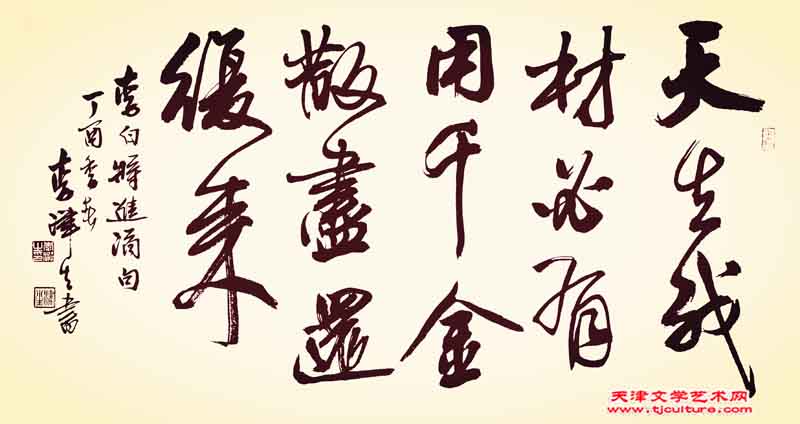 天生我
材必有
用千金
散盡還
復来
李白將進酒句
丁酉季春
李津生書
天津文学艺术网
www.tjculture.com